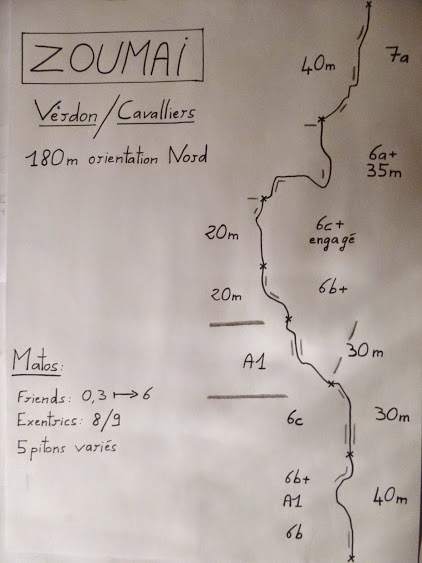 ZOUMAi
Vérdon/Cavalliers
180m orientation Nord
40m
7a
6a+
35m
20m
6c+
engagé
20m
6b+
A1
30m
Matos:
Friends: 0,3 ↦ 6
Exentrics: 8/9
5 pitons variés
6c
30m
6b+
A1
40m
6b